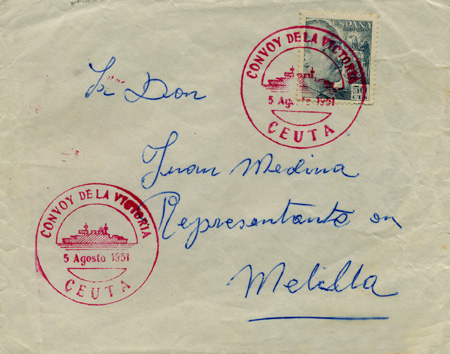 CONVOY DE LA VICTORIA
5 Agosto 1951
CEUTA
ESPAÑA
50
Sr Don
Juan Medina
Representante en
Melilla
CONVOY DE LA VICTORIA
5 Agosto 1951
CEUTA